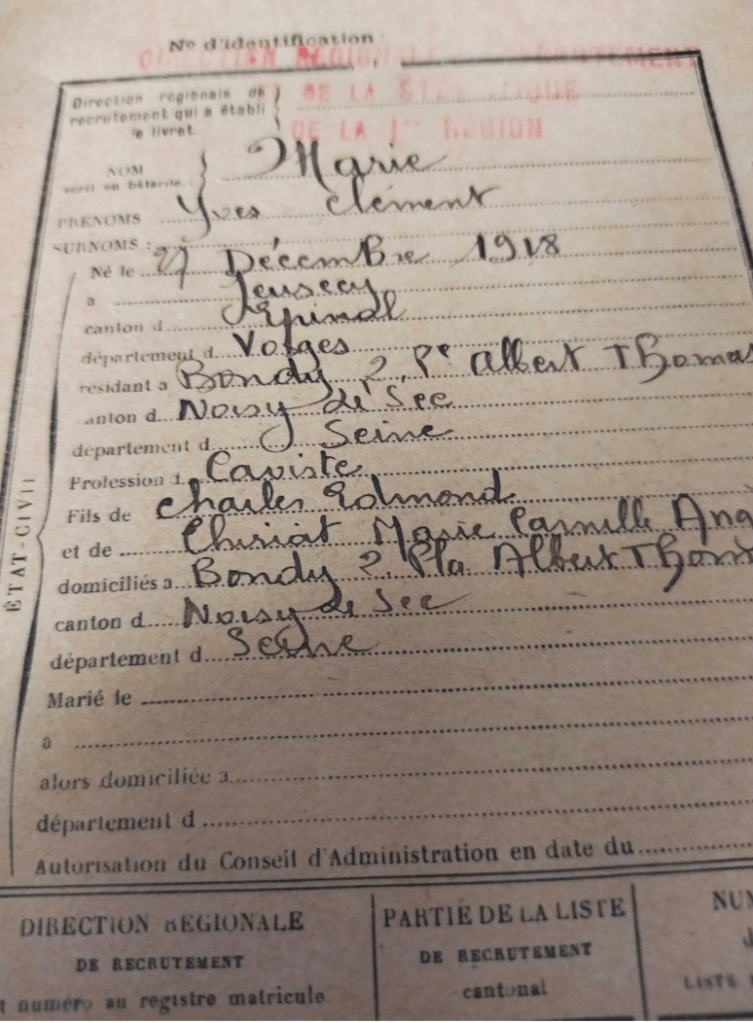 No d'identification
DIRECTION RÉGIONALE RECRUTEMENT
DE LA
DE LA 1re RÉGION
Direction régionale de
recrutement qui a établi
le livret.
NOM Marie
écrit en bâtarde.
PRÉNOMS Yves Clément
SURNOMS :
Né le 27 Décembre 1918
à Jeusecy
canton d Epinal
département d Vosges
résidant à Bondy 2, Pe Albert Thomas
canton d Noisy de Sec
département d Seine
Profession d Caviste
Fils de Charles Edmond
et de Marie Camille
domiciliés à Bondy 2, Pla Albert Thom
canton d Noisy de Sec
département d Seine
Marié le
à
alors domiciliée à
département d
Autorisation du Conseil d'Administration en date du
ÉTAT-CIVIL
DIRECTION RÉGIONALE
DE RECRUTEMENT
t numéro au registre matricule
PARTIE DE LA LISTE
DE RECRUTEMENT
cantonal
NU
LISTE